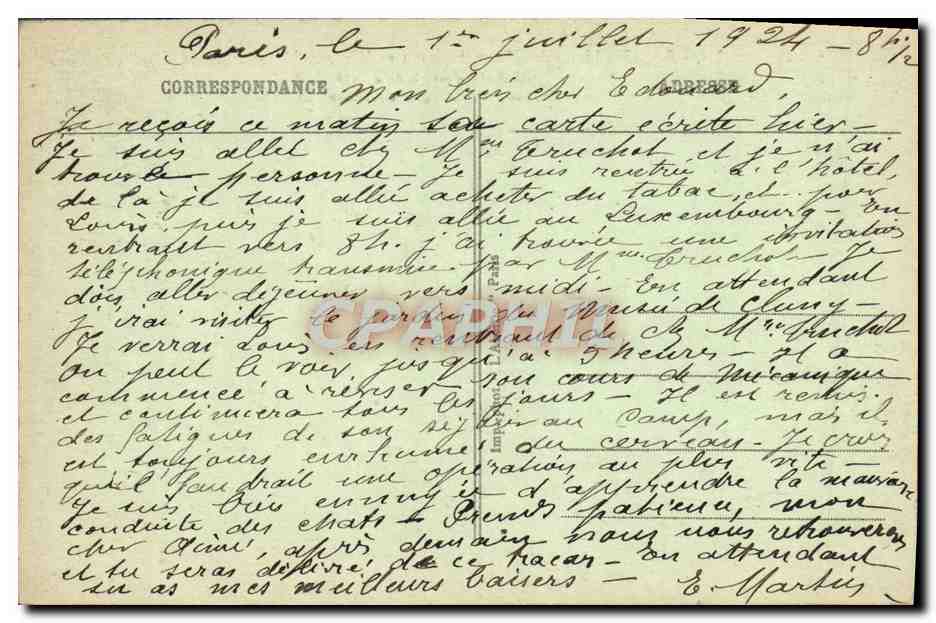 Paris, le 1er juillet 1924 - 8h 1/2
CORRESPONDANCE ADRESSE
Mon très cher Edouard,
Je reçois ce matin ta carte écrite hier -
Je suis allée chez Mme Truchot et je n'ai
trouvé personne - Je suis rentrée à l'hôtel,
de là je suis allée acheter du tabac, et pour
Louis, puis je suis allée au Luxembourg - En
rentrant vers 8h. j'ai trouvée une invitation
téléphonique transmise par Mme Truchot - Je
dois aller déjeuner vers midi - En attendant
j'irai visiter le jardin du Musée de Cluny -
Je verrai Louis en rentrant de chez Mme Truchot
On peut le voir jusqu'à 5 heures - Il a
commencé à réviser son cours de Mécanique
et continuera tous les jours - Il est remis
des fatigues de son séjour au camp, mais il
est toujours enrhumé du cerveau - Je crois
qu'il faudrait une opération au plus vite -
Je suis bien ennuyée d'apprendre la mauvaise
conduite des chats - Prends patience, mon
cher Aimé, après demain nous nous retrouverons
et tu seras délivré de ce tracas - En attendant
tu as mes meilleurs baisers - E. Martin
Imp. Phot. Paris
CPAPHIL